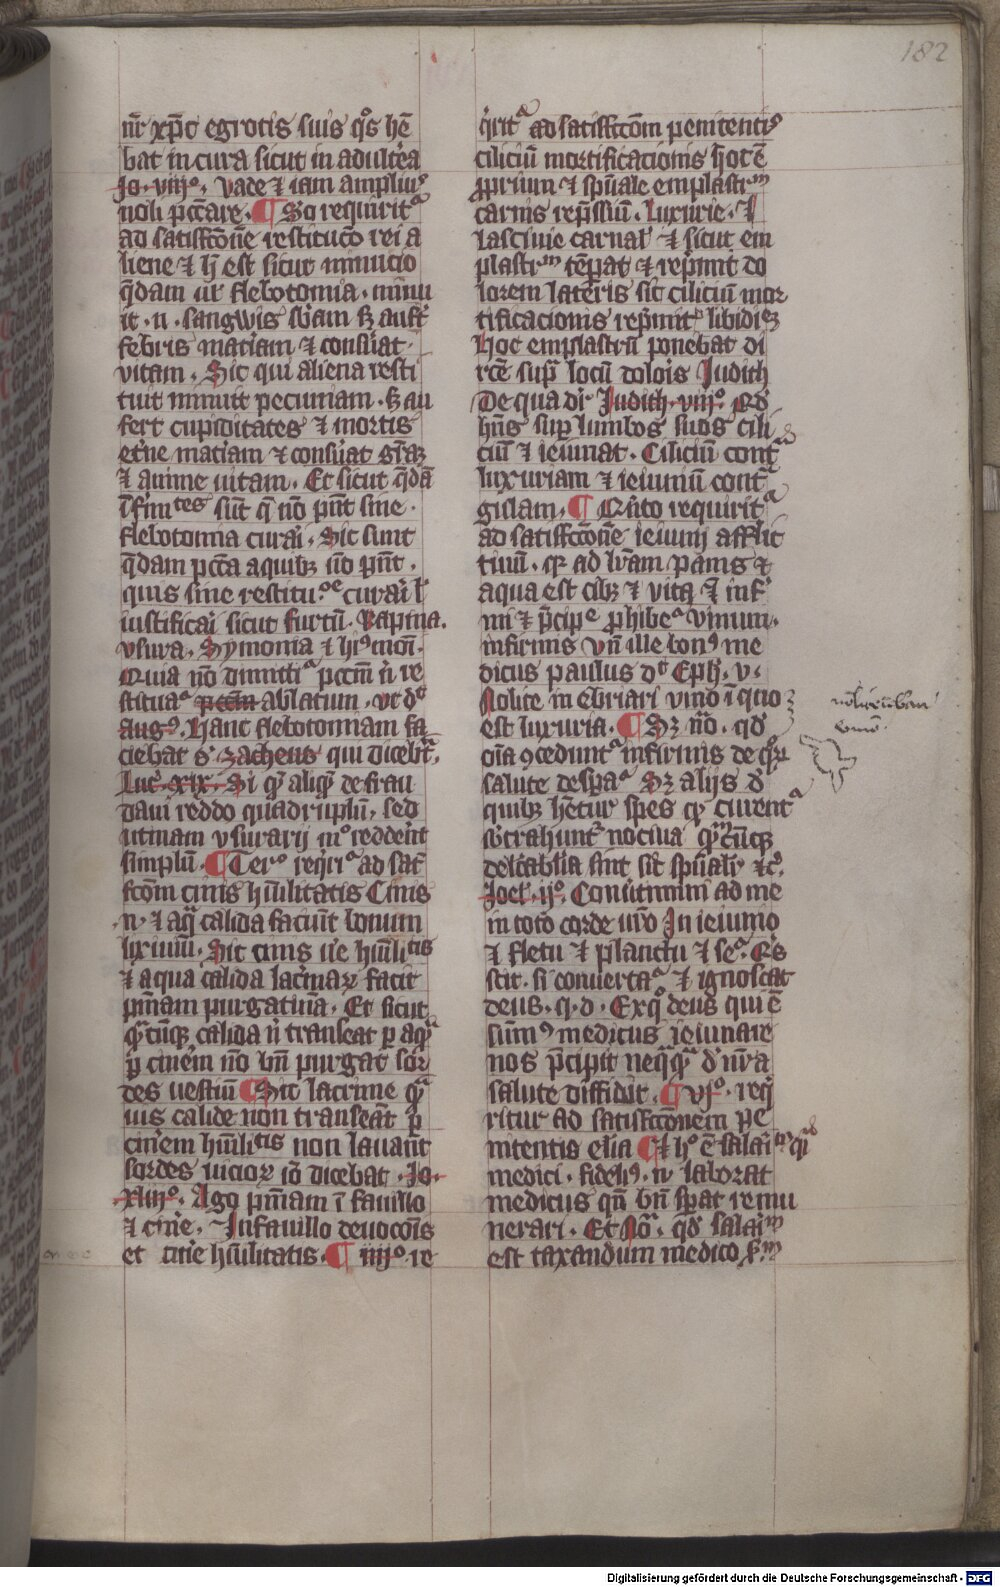 182
nr̄ xp̄c egrotis suis qͦs hē
bat in cura sicut in adultera
Jo. viijͦ. Vade et iam amplius
noli pccare. ¶ So requirit᷑
ad satisfcc̄one restituco rei a
liene et h̄ est sicut minucio
q̄dam ul᷑ flebotomia. minu
it. n. sangwis sb̄am sꝫ aufert
febris materiam et consuat
vitam. Sic qui aliena resti
tuit minuit pecuniam. sꝫ au
fert cupiditates et mortis
etne materiam et consuat glaꝫ
et anime uitam. Et sicut q̄dā
īfirmtes sūt q̄ nō pn̄t sine
flebotomia curari. Sic sunt
q̄dam pcc̄a a quibꝫ nō pn̄t.
quis sine restituōe curari ul᷑
iustificari sicut furtū. Rapina.
vsura. Symonia et hiꝰmoī.
Quia nō dimitti᷑ pccm n̄ re
stitua᷑ pccm ablatum. vt dt
Augꝰ. Hanc flebotomiam fa
ciebat s. zacheus qui diceb᷑.
Luc. xix. Si qͥ aliqͥ defrau
davi reddo quadruplū, sed
utinam vsurarij mͦ reddent
simplū. ¶ Terͦ reqri᷑ ad sat
fccōm cinis hūilitatis Cinis
n. et aq̄ calida faciūt bonum
lixiuiū. Sic cinis ue hūilitis
et aqua calida lacrimaꝝ facit
pn̄iam purgatiuā. Et sicut
qᷓtūcqꝫ calida n̄ transeat p aqᷓ
p cinem nō bn̄ purgat sor
des uestiū ¶ Sic lacrime qᷓ
uis calide non transeāt p
cinem hūilitis non lauant
sordes uicioꝝ iō dicebat. Jo.
xliijͦ. Ago pn̄iam ī fauillo
et cine. In fauillo deuocōis
et cine hūilitatis. ¶ iiijͦ. re
qrit᷑ ad satisfccōm penitentis
ciliciū mortificacionis hoc ē
ꝓprium et spūale emplastrm
carnis rep̄ssiuū. luxurie. et
lasciuie carnal᷑ et sicut em
plastrm tēpat et rep̄mit do
lorem lateris sic ciliciū mor
tificacionis rep̄mit libidiēꝫ
Hoc emplastrū ponebat di
rcē sup locū dolois Judith
De qua dr Judith. viijͦ. Qd
hn̄s sup lumbos suos cili
ciū et ieiunat. Ciliciū cont᷑
luxuriam et ieiuniū cont᷑
gulam. ¶ Qnto requirit᷑
ad satisfccōne ieiunij afflic
tiuū. qꝛ ad lram panis et
aqua est cibꝫ et vita et inf
mi et p̄cipe phibe᷑ vinum.
infirmis vn̄ ille bonꝰ me
dicus paulus dt Eph. v.
Nolite in ebriari vino ī quo
est luxuria. ¶ Sꝫ nō. qd
oīa ↄcedunt᷑ infirmis de qͬ
salute despa᷑ Sꝫ alijs d
quibꝫ hētur spes qͥ curent᷑
sbtrahunt᷑ nociua qᷓtūcqꝫ
delcabilia sint sic spūalr etc.
Joel. ijͦ. Conuertimini ad me
in toto corde uro In ieiunio
et fletu et planctu et se. Qs
scit. si conuerta᷑ et ignoscat
deus. q. d. Ex qͦ deus qui ē
sūmꝰ medicus ieiunare
nos p̄cipit neqᷓqᷓ d nra
salute diffidit. ¶ vjͦ. req
ritur ad satisfccōnem pe
nitentis elia ¶ et hͦ ē salariū qͥ
medici. fidelꝰ. n. laborat
medicus qn̄ bn̄ sp̄at remu
nerari. Et nō. qd salarm
est taxandum medico sm